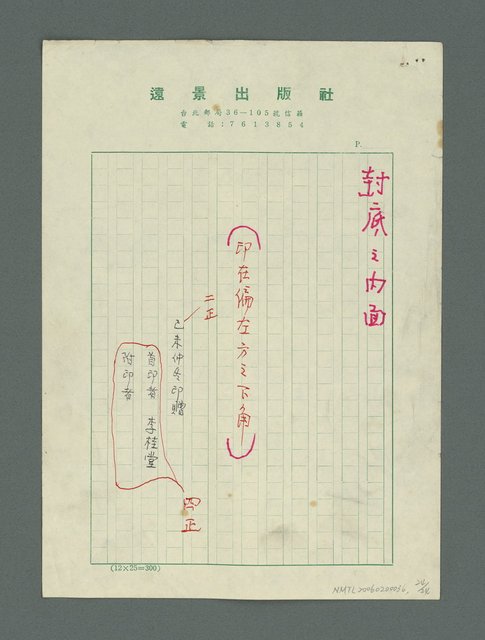 遠景出版社
台北郵局36－105號信箱
電話：7613854
P.
封底之內面
（印在偏左方之下角）
二正
己未仲冬印贈
首印者　李桂堂
附印者
四正
(12×25=300)
NMTL20060200056
24/24